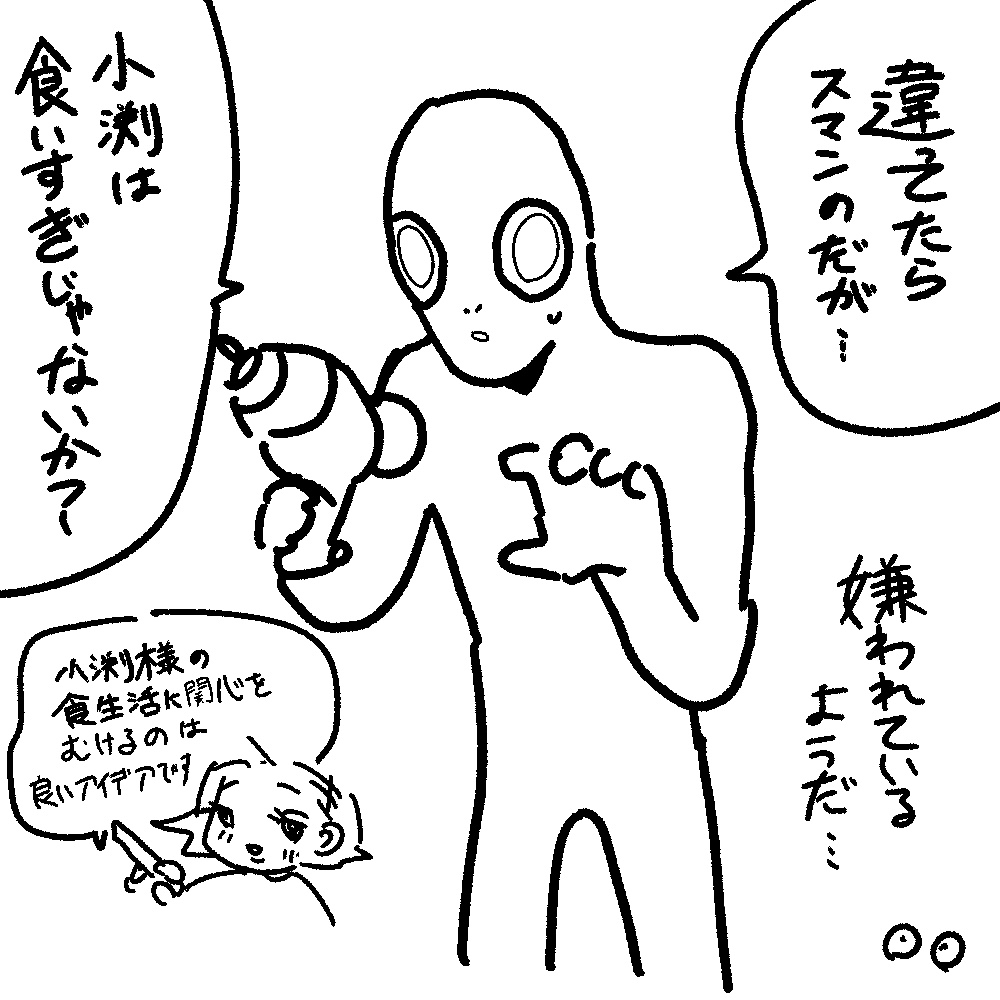 違ってたら
スマンのだが…
小渕は
食いすぎじゃないか？
嫌われている
ようだ…
小渕様の
食生活に関心を
むけるのは
良いアイデアです